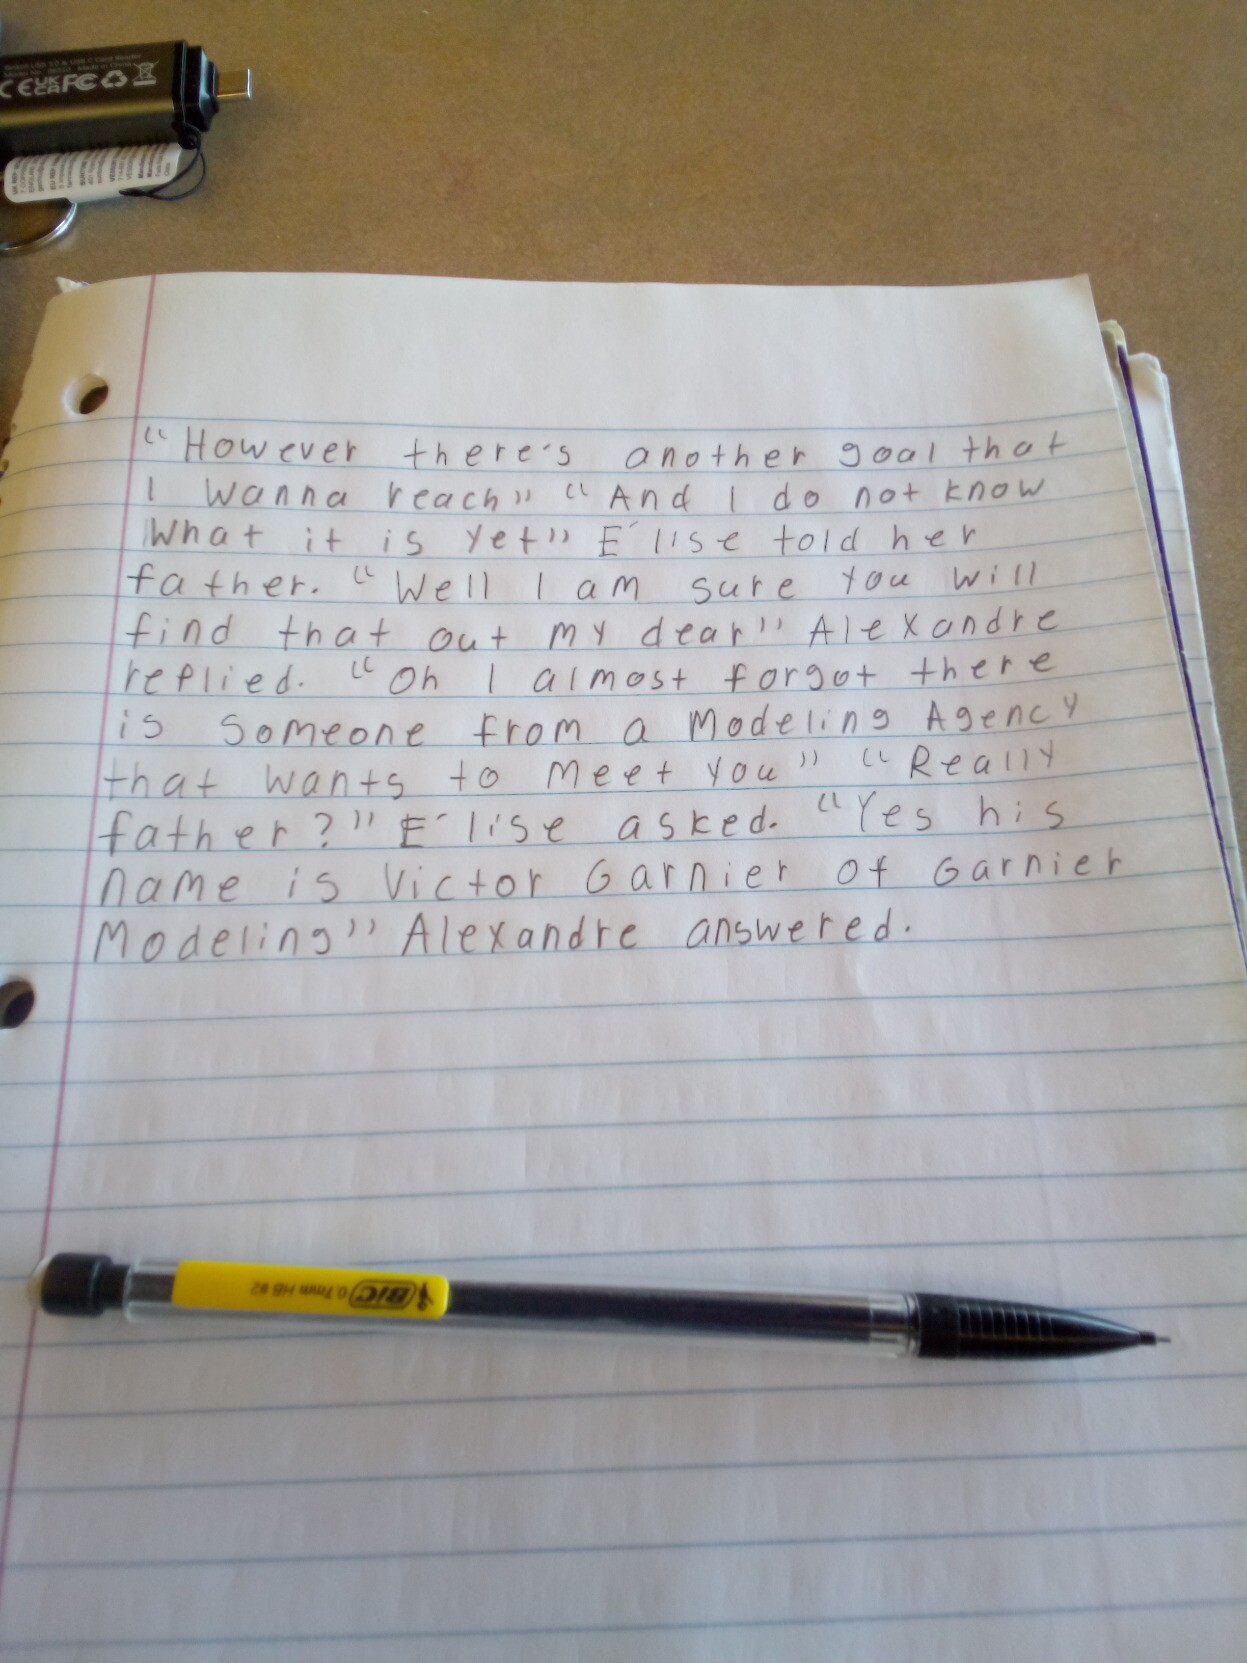 CE UK CA FC
"However there's another goal that
I wanna reach" "And I do not know
What it is yet" Élise told her
father. "Well I am sure you will
find that out my dear" Alexandre
replied. "Oh I almost forgot there
is someone from a Modeling Agency
that wants to meet you" "Really
father?" Élise asked. "Yes his
name is Victor Garnier of Garnier
Modeling" Alexandre answered.
BIC 0.7mm HB #2